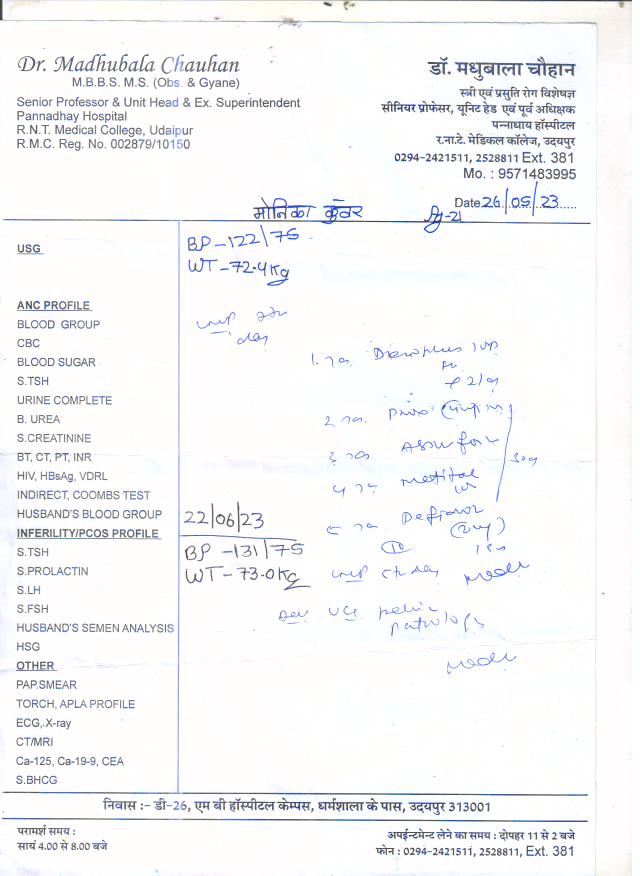 Dr. Madhubala Chauhan
M.B.B.S. M.S. (Obs. & Gyane)
Senior Professor & Unit Head & Ex. Superintendent
Pannadhay Hospital
R.N.T. Medical College, Udaipur
R.M.C. Reg. No. 002879/10150
डॉ. मधुबाला चौहान
स्त्री एवं प्रसुति रोग विशेषज्ञ
सीनियर प्रोफेसर, यूनिट हेड एवं पूर्व अधिक्षक
पन्नाधाय हॉस्पीटल
र.ना.टे. मेडिकल कॉलेज, उदयपुर
0294-2421511, 2528811 Ext. 381
Mo. : 9571483995
Date 26/05/23
मोनिका कुंवर
USG
BP-122/75
WT-72.4Kg
ANC PROFILE
BLOOD GROUP
CBC
BLOOD SUGAR
S.TSH
URINE COMPLETE
B. UREA
S.CREATININE
BT, CT, PT, INR
HIV, HBsAg, VDRL
INDIRECT, COOMBS TEST
HUSBAND'S BLOOD GROUP
INFERILITY/PCOS PROFILE
S.TSH
S.PROLACTIN
S.LH
S.FSH
HUSBAND'S SEMEN ANALYSIS
HSG
OTHER
PAP.SMEAR
TORCH, APLA PROFILE
ECG, X-ray
CT/MRI
Ca-125, Ca-19-9, CEA
S.BHCG
22/06/23
BP-131/75
WT-73.0Kg
pelvic
pathology
निवास :- डी-26, एम बी हॉस्पीटल केम्पस, धर्मशाला के पास, उदयपुर 313001
परामर्श समय :
सायं 4.00 से 8.00 बजे
अपईन्टमेन्ट लेने का समय : दोपहर 11 से 2 बजे
फोन : 0294-2421511, 2528811, Ext. 381